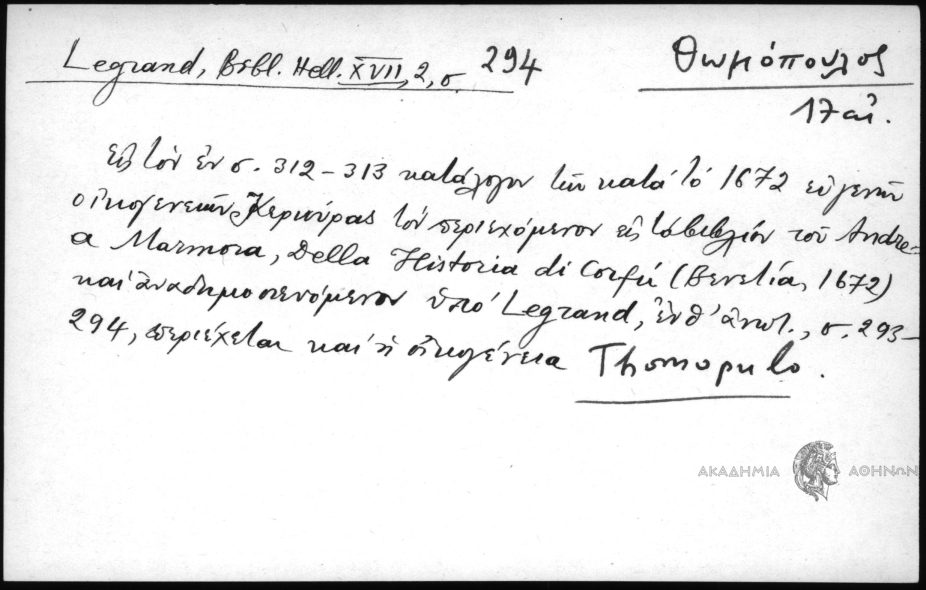 Legrand, Bibl. Hell. XVII, 2, σ. 294
Θωμόπουλος
17 αἰ.
Εἰς τὸν ἐν σ. 312-313 κατάλογον τῶν κατὰ τὸ 1672 εὐγενῶν
οἰκογενειῶν Κερκύρας τὸν περιεχόμενον εἰς τὸ βιβλίον τοῦ Andre-
a Marmora, Della Historia di Corfú (Βενετία, 1672)
καὶ ἀναδημοσιευόμενον ὑπὸ Legrand, ἔνθ' ἀνωτ., σ. 293-
294, περιέχεται καὶ ἡ οἰκογένεια Thomopulo.
ΑΚΑΔΗΜΙΑ ΑΘΗΝΩΝ